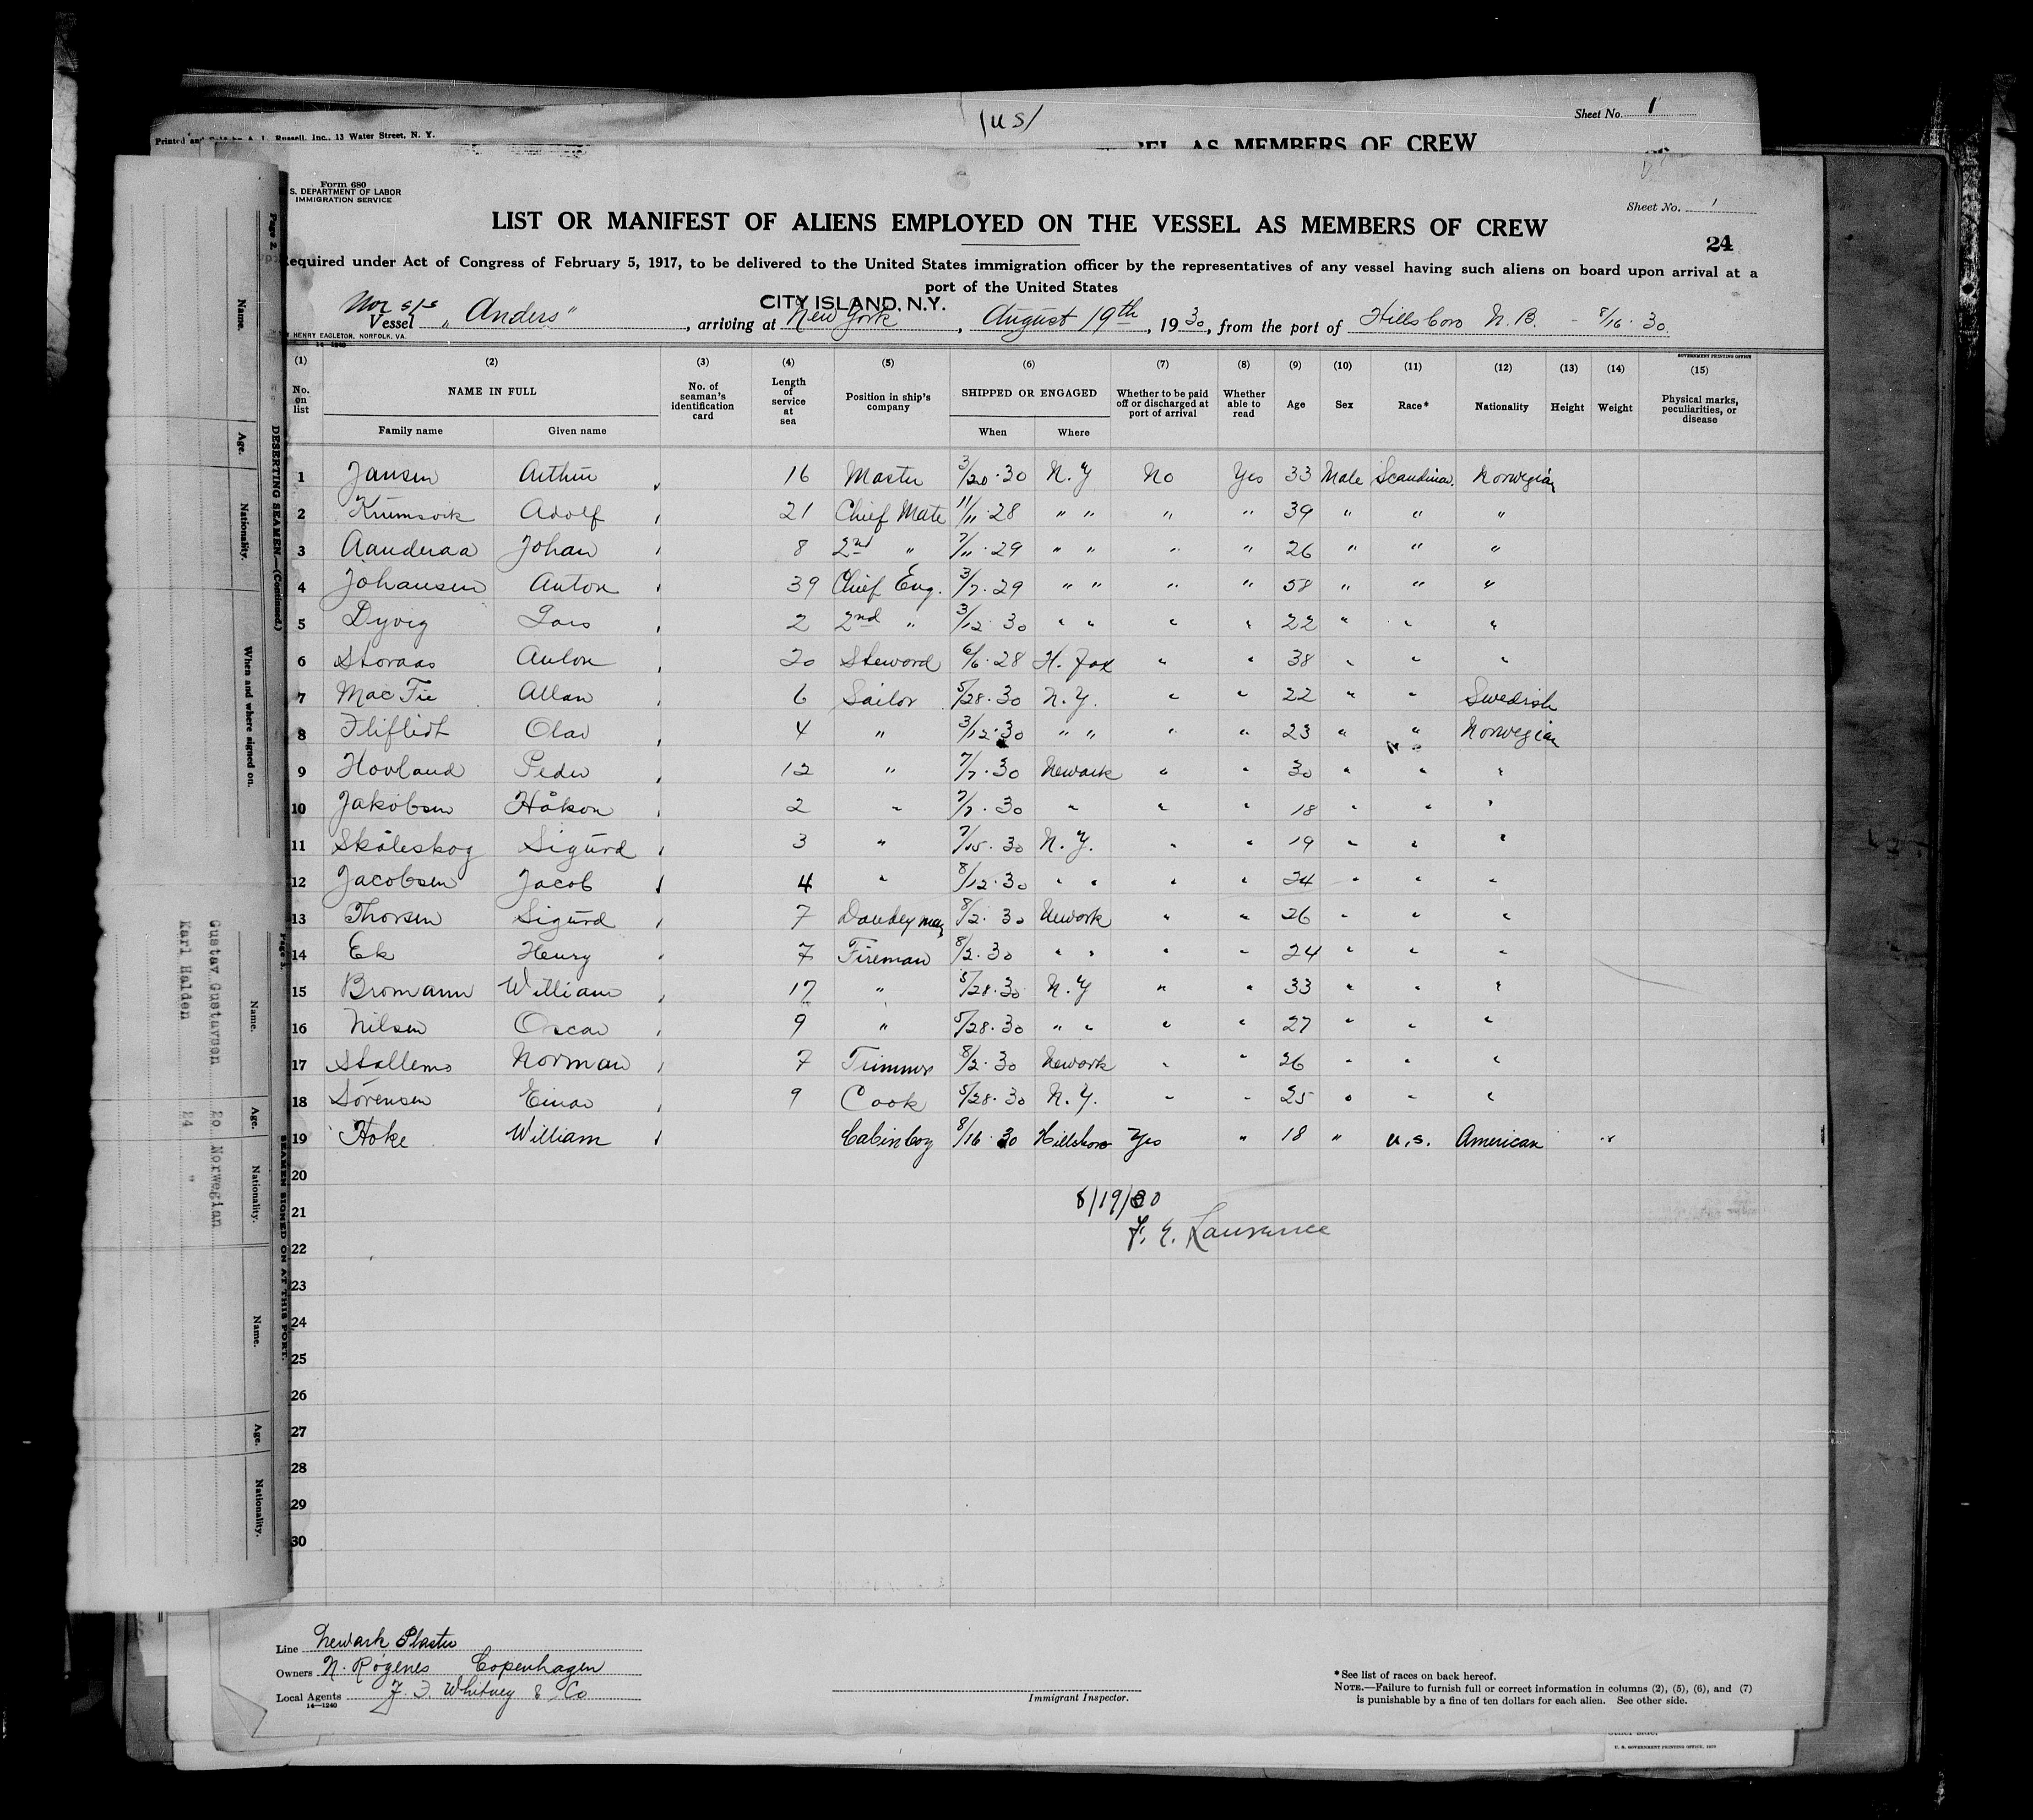 Printed and Sold by A. L. Russell, Inc., 13 Water Street, N. Y.
(US)
Sheet No. 1
AS MEMBERS OF CREW
Form 680
S. DEPARTMENT OF LABOR
IMMIGRATION SERVICE
Sheet No. 1
LIST OR MANIFEST OF ALIENS EMPLOYED ON THE VESSEL AS MEMBERS OF CREW
24
Required under Act of Congress of February 5, 1917, to be delivered to the United States immigration officer by the representatives of any vessel having such aliens on board upon arrival at a
port of the United States
CITY ISLAND, N.Y.
Nor s/s
Vessel „ Anders ", arriving at New York, August 19th, 1930, from the port of Hillsboro N.B. - 8/16 · 30.
HENRY EAGLETON, NORFOLK, VA.
14—1240
GOVERNMENT PRINTING OFFICE
(1) (2) (3) (4) (5) (6) (7) (8) (9) (10) (11) (12) (13) (14) (15)
No. on list NAME IN FULL No. of seaman's identification card Length of service at sea Position in ship's company SHIPPED OR ENGAGED Whether to be paid off or discharged at port of arrival Whether able to read Age Sex Race* Nationality Height Weight Physical marks, peculiarities, or disease
Family name Given name When Where
1 Jansen Arthur 16 Master 3/20·30 N.Y No Yes 33 Male Scandinav. Norwegian
2 Krumsvik Adolf 21 Chief Mate 11/11·28 " " " " 39 " " "
3 Aanderaa Johan 8 2nd " 7/11·29 " " " " 26 " " "
4 Johansen Anton 39 Chief Eng. 3/7·29 " " " " 58 " " "
5 Dyvig Lars 2 2nd " 3/12·30 " " " " 22 " " "
6 Storaas Anton 20 Steword 6/6·28 H. Fax " " 38 " " "
7 Mac Fie Allan 6 Sailor 5/28·30 N.Y. " " 22 " " Swedish
8 Fliflidt Olav 4 " 3/12·30 " " " " 23 " " Norwegian
9 Hovland Peder 12 " 7/7·30 Newark " " 30 " " "
10 Jakobsen Håkon 2 " 7/7·30 " " " 18 " " "
11 Skåleskog Sigurd 3 " 7/15·30 N.Y. " " 19 " " "
12 Jacobsen Jacob 4 " 8/12·30 " " " " 24 " " "
13 Thorsen Sigurd 7 Donkey man 8/2·30 Newark " " 26 " " "
14 Ek Henry 7 Fireman 8/2·30 " " " " 24 " " "
15 Bromann William 17 " 5/28·30 N.Y " " 33 " " "
16 Nilsen Oscar 9 " 5/28·30 " " " " 27 " " "
17 Stallemo Norman 7 Trimmer 8/2·30 Newark " " 26 " " "
18 Sörensen Einar 9 Cook 5/28·30 N.Y. " " 25 " " "
19 Hoke William Cabinboy 8/16·30 Hillsboro Yes " 18 " U.S. American
20
8/19/30
21
F. E. Laurence
22
23
24
25
26
27
28
29
30
Line Newark Plaster
Owners N. Røgenes Copenhagen
Local Agents J. F. Whitney & Co
14—1240
Immigrant Inspector.
*See list of races on back hereof.
NOTE.—Failure to furnish full or correct information in columns (2), (5), (6), and (7)
is punishable by a fine of ten dollars for each alien. See other side.
U. S. GOVERNMENT PRINTING OFFICE
Page 2.
DESERTING SEAMEN.—(Continued.)
Name. Age. Nationality. When and where signed on.
Page 3.
SEAMEN SIGNED ON AT THIS PORT.
Name. Age. Nationality. Name. Age. Nationality.
Gustav Gustavsen 20 Norwegian
Karl Halden 24 "